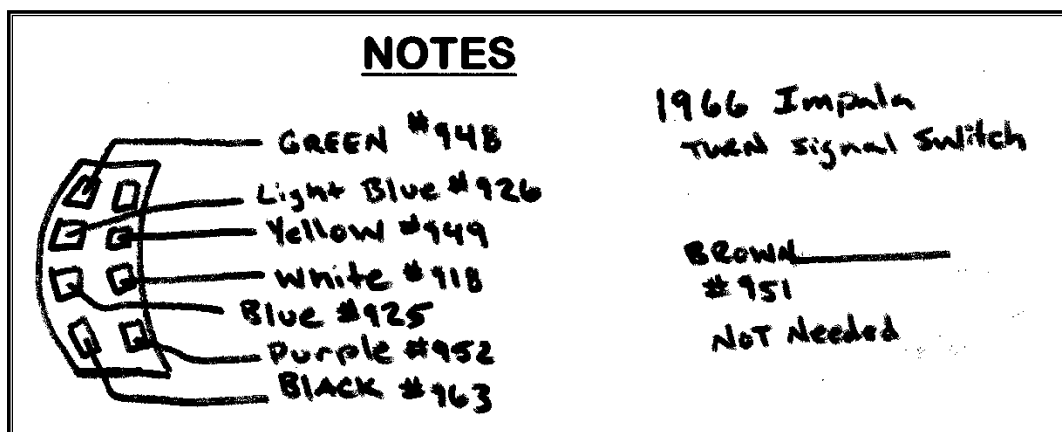 NOTES
GREEN #948
Light Blue #926
Yellow #949
White #918
Blue #925
Purple #952
BLACK #963
1966 Impala
TURN signal switch
BROWN
#951
NOT Needed